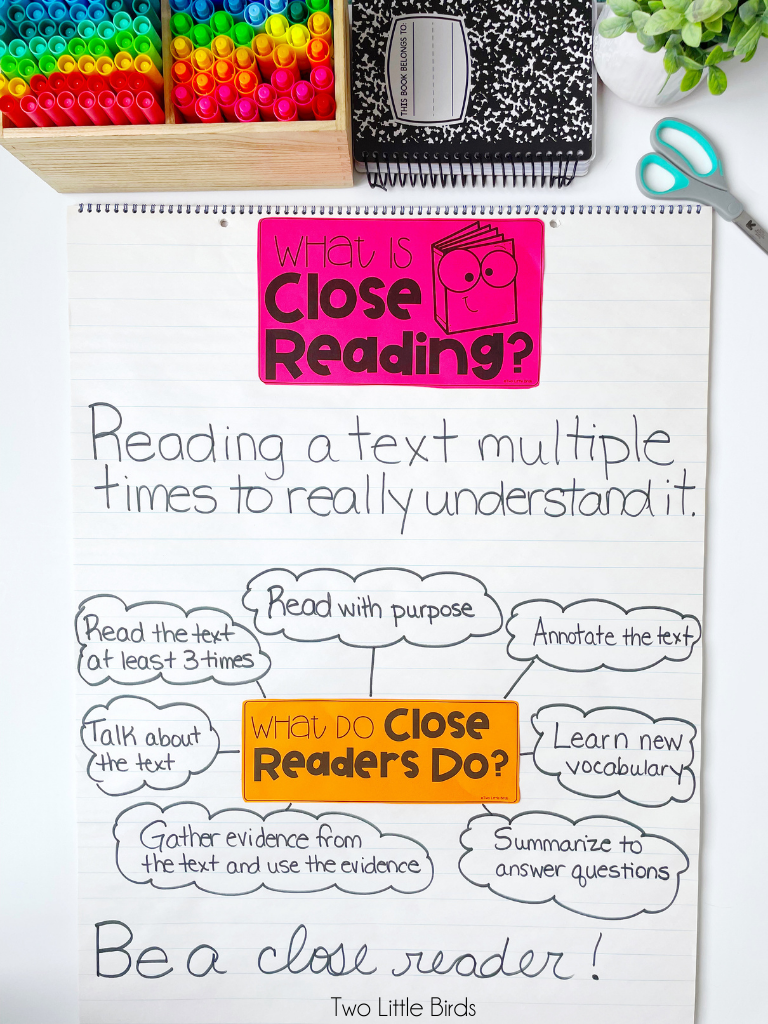 THIS BOOK BELONGS TO:
WHAT IS
Close
Reading?
Reading a text multiple
times to really understand it.
Read with purpose
Read the text
at least 3 times
Annotate the text
Talk about
the text
WHAT DO Close
Readers Do?
Learn new
vocabulary
Gather evidence from
the text and use the evidence
Summarize to
answer questions
Be a close reader!
Two Little Birds